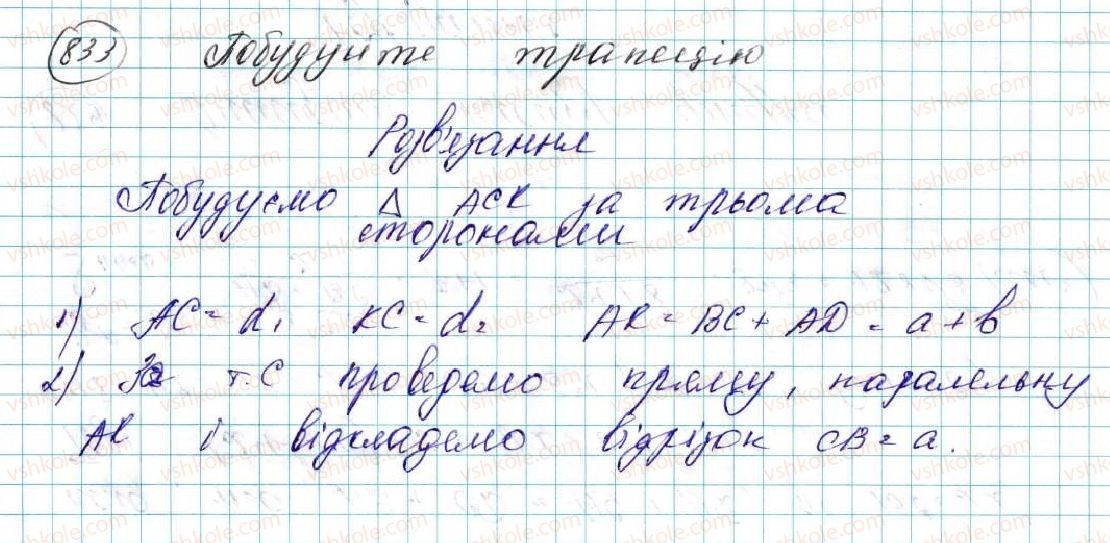 833 Побудуйте трапецію
Розв'язання
Побудуємо Δ ACK за трьома
сторонами
1) AC = d₁ KC = d₂ AK = BC + AD = a + b
2) За т. C проведемо пряму, паралельну
AK і відкладемо відрізок CB = a.